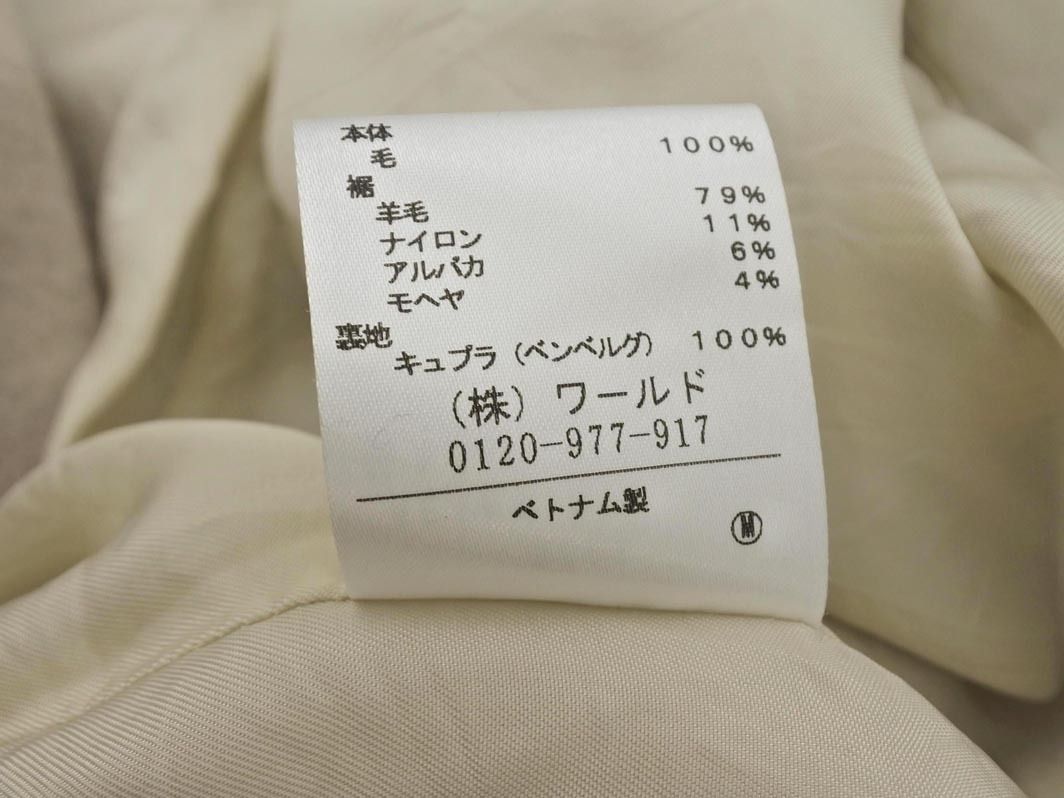 本体
毛 100%
裾
羊毛 79%
ナイロン 11%
アルパカ 6%
モヘヤ 4%
裏地
キュプラ（ベンベルグ） 100%
（株）ワールド
0120-977-917
ベトナム製
Ⓜ